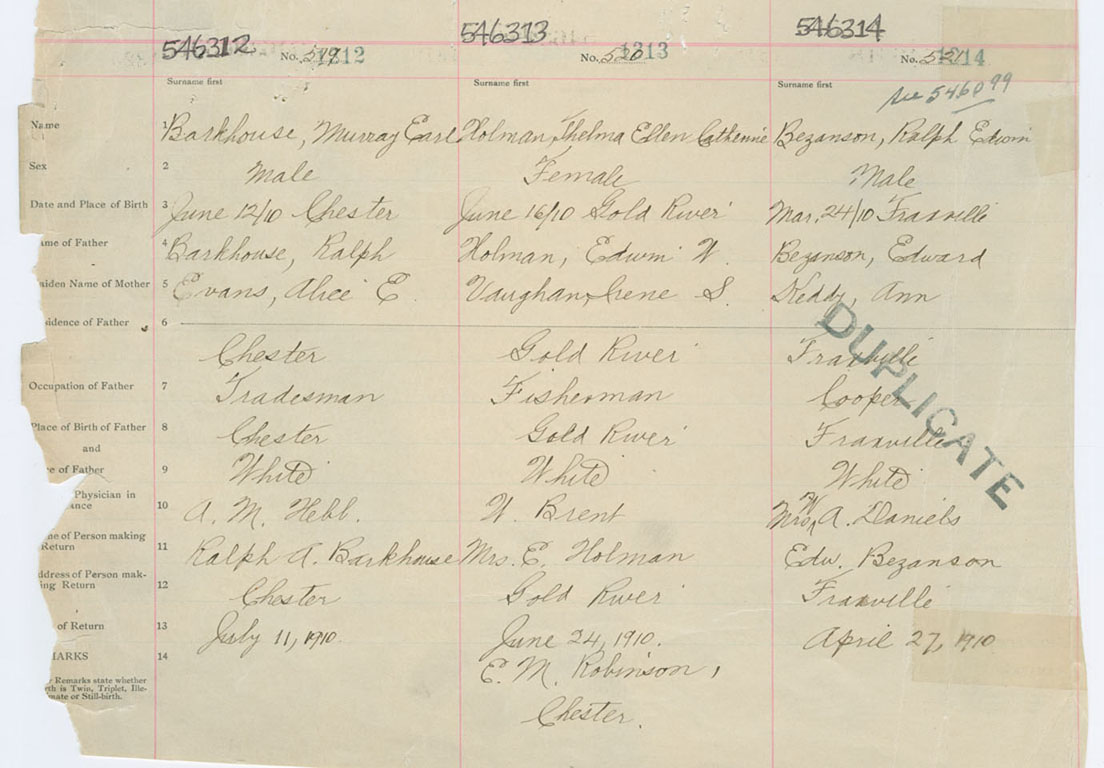 546312 546313 546314
No. 519 1212 No. 520 1213 No. 521 1214
Surname first Surname first Surname first
see 546099
Name 1 Barkhouse, Murray Earl Holman, Thelma Ellen Catherine Bezanson, Ralph Edwin
Sex 2 Male Female Male
Date and Place of Birth 3 June 12/10 Chester June 16/10 Gold River Mar. 24/10 Fraxville
ame of Father 4 Barkhouse, Ralph Holman, Edwin W. Bezanson, Edward
aiden Name of Mother 5 Evans, Alice E. Vaughan, Irene S. Keddy, Ann
sidence of Father 6
Chester Gold River Fraxville
DUPLICATE
Occupation of Father 7 Tradesman Fisherman Cooper
Place of Birth of Father 8 Chester Gold River Fraxville
and
ce of Father 9 White White White
Physician in
ance 10 A. M. Hebb. W. Brent Mrs. A. Daniels
me of Person making
Return 11 Ralph A. Barkhouse Mrs. E. Holman Edw. Bezanson
ddress of Person mak-
ing Return 12 Chester Gold River Fraxville
of Return 13 July 11, 1910. June 24, 1910. April 27, 1910
MARKS 14 E. M. Robinson,
r Remarks state whether
th is Twin, Triplet, Ille-
mate or Still-birth.
Chester.